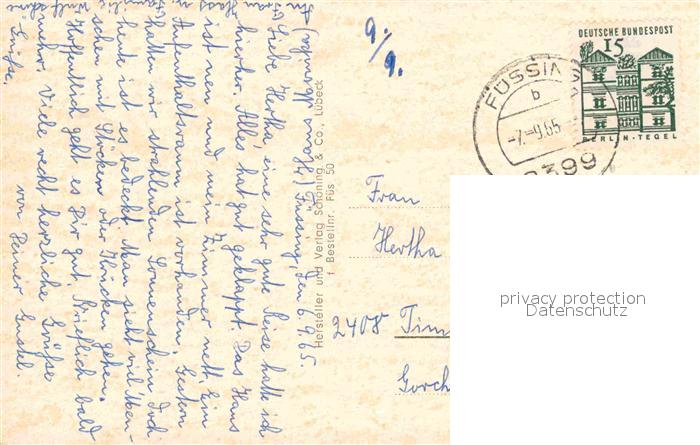 (Gasthof Thomas) Füssing, den 6.9.65.
Liebe Hertha, eine sehr gute Reise hatte ich
hierher. Alles hat gut geklappt. Das Haus
ist neu und mein Zimmer nett. Ein
Aufenthaltsraum ist vorhanden. Gestern
hatten wir strahlenden Sonnenschein doch
heute ist es bedeckt. Man sieht viel Men-
schen mit Stöcken oder Krücken gehen.
Hoffentlich geht es Dir gut. Brieflich bald
mehr. Viele recht herzliche Grüße
von Deiner Gustel.
Grüße.
Hersteller und Verlag Schöning & Co., Lübeck
f Bestellnr. Füs 50
9./
9.
DEUTSCHE BUNDESPOST
15
BERLIN-TEGEL
FÜSSING
b
-7.-9.65
8399
Frau
Hertha
2408 Tim
Gorch
privacy protection
Datenschutz